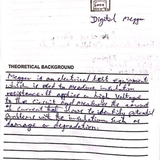 Digital Megger
THEORETICAL BACKGROUND
Megger is an electrical test equipment
which is used to measure insulation
resistance. It applies a high Voltage
to the circuit and measures the amount
of current that flows to identify potential
problems with the insulation such as
damage or degradation.